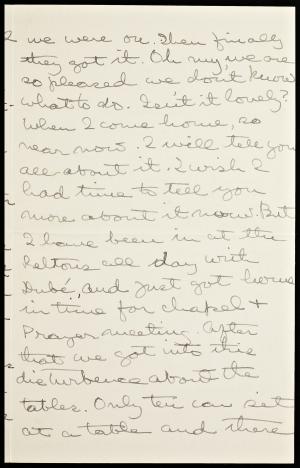 2 we were on. Then finally
they got it. Oh my, we are
so pleased we don't know
what to do. Isn't it lovely?
When I come home, so
near now. I will tell you
all about it. I wish I
had time to tell you
more about it now. But
I have been in at the
Reltons all day with
Dubé, and just got home
in time for chapel +
Prayer meeting. After
that we got into this
disturbence about the
tables. Only ten can set
at a table and there